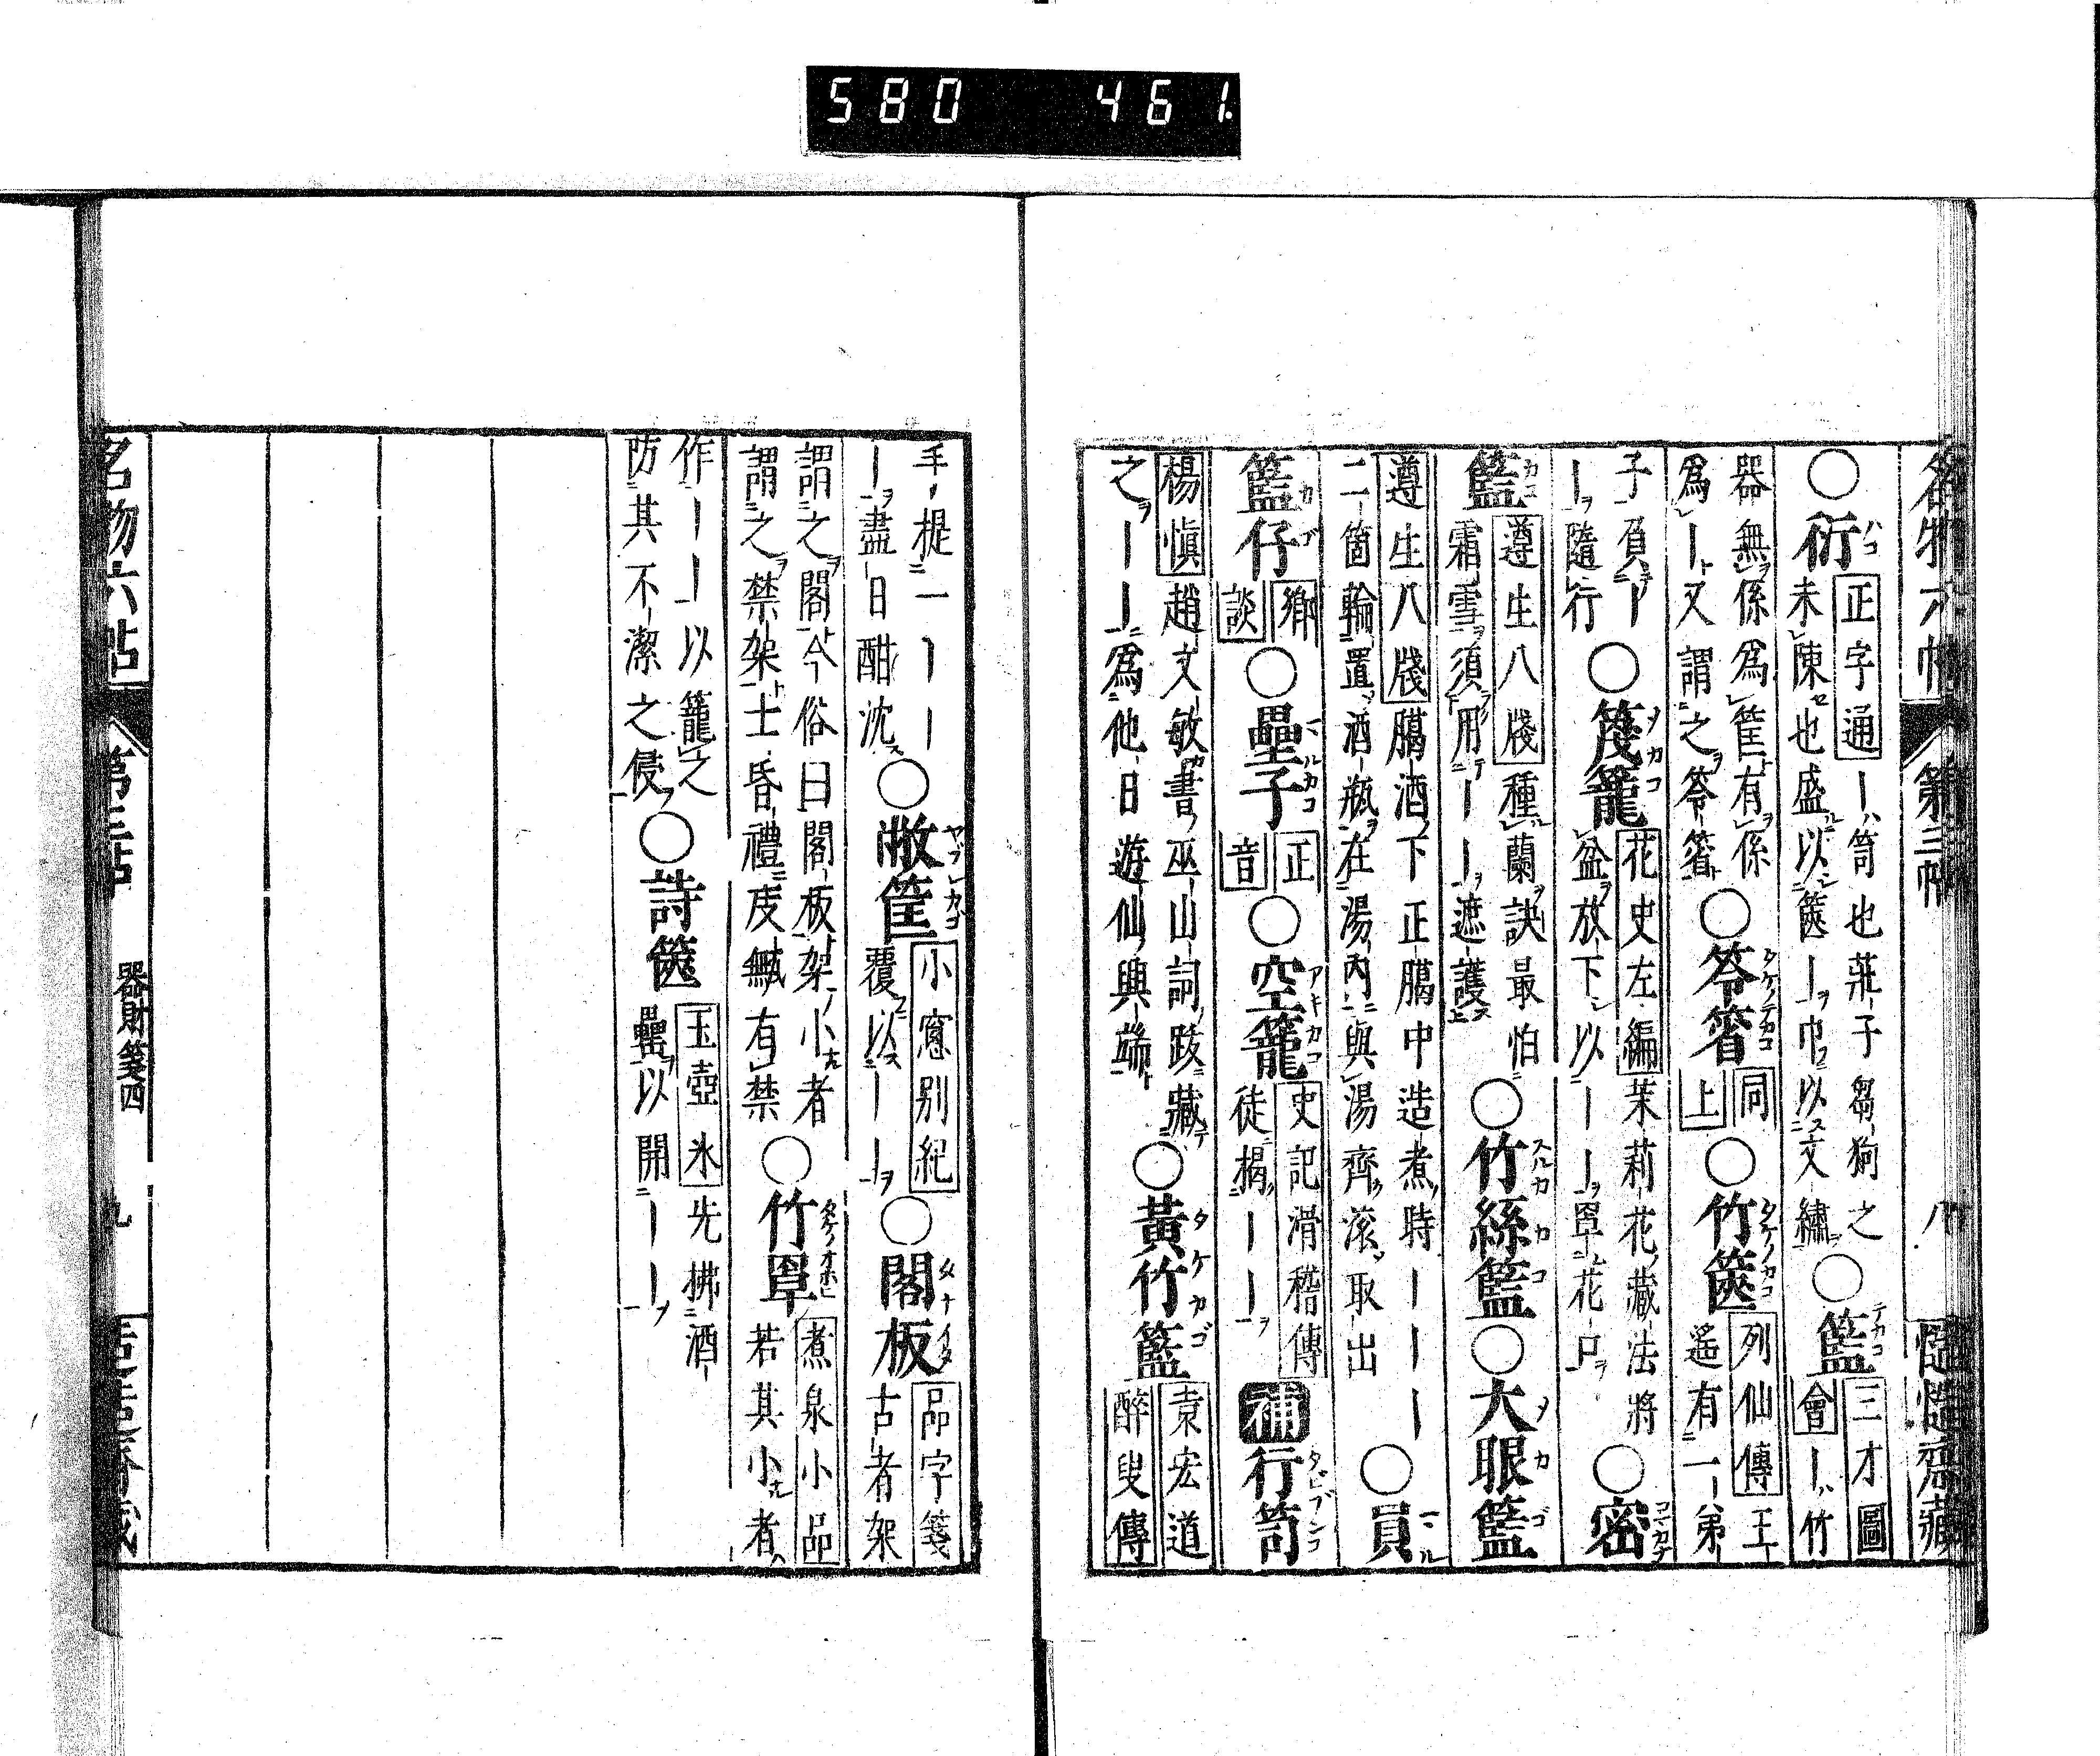 580 461.
名物六帖 第三帖 八
○衍ハコ 正字通 ｜ハ笥也莊子芻狗之
未陳也盛以篋｜巾以文繡 ○籃テカコ 三才圖
會 ｜ハ竹
器無係爲筐有係
爲｜又謂之笭箵 ○笭箵タケノテカコ 同上 ○竹篋タケノカコ 列仙傳 王
遙有一弟
子負｜
｜隨行 ○篾籠ヲカコ 花史左編 茉莉花藏法將
盆放下以｜｜罩花口 ○密コマカナ
籃カコ 遵生八牋 種蘭訣最怕
霜雪須用｜｜遮護 ○竹絲籃カコ ○大眼籃ヲカゴ ○員マル
遵生八牋 臈酒下正臈中造煮時｜｜｜
二箇輪置酒瓶在湯內與湯齊滾取出
籃仔カゴ 鄉談 ○壘子マルカコ 正音 ○空籠アキカコ 史記滑稽傳
徒揭｜｜ 補 行笥タビブンコ
楊愼 趙文敏書巫山詞跋藏
之｜｜爲他日遊仙興端 ○黃竹籃タケカゴ 袁宏道
醉叟傳
手提一｜｜｜
｜盡日酣沈 ○敝筐ヤブレカゴ 小窓別紀
覆以｜｜ ○閣板タナイタ 品字箋
古者架
謂之閣今俗曰閣板架小者
謂之禁架士昏禮庋甒有禁 ○竹罩 煮泉小品
若其小者
作｜｜以籠之
防其不潔之侵 ○詩篋 玉壺氷 先拂酒
罍以開｜｜
名物六帖 第三帖 器財箋四 九